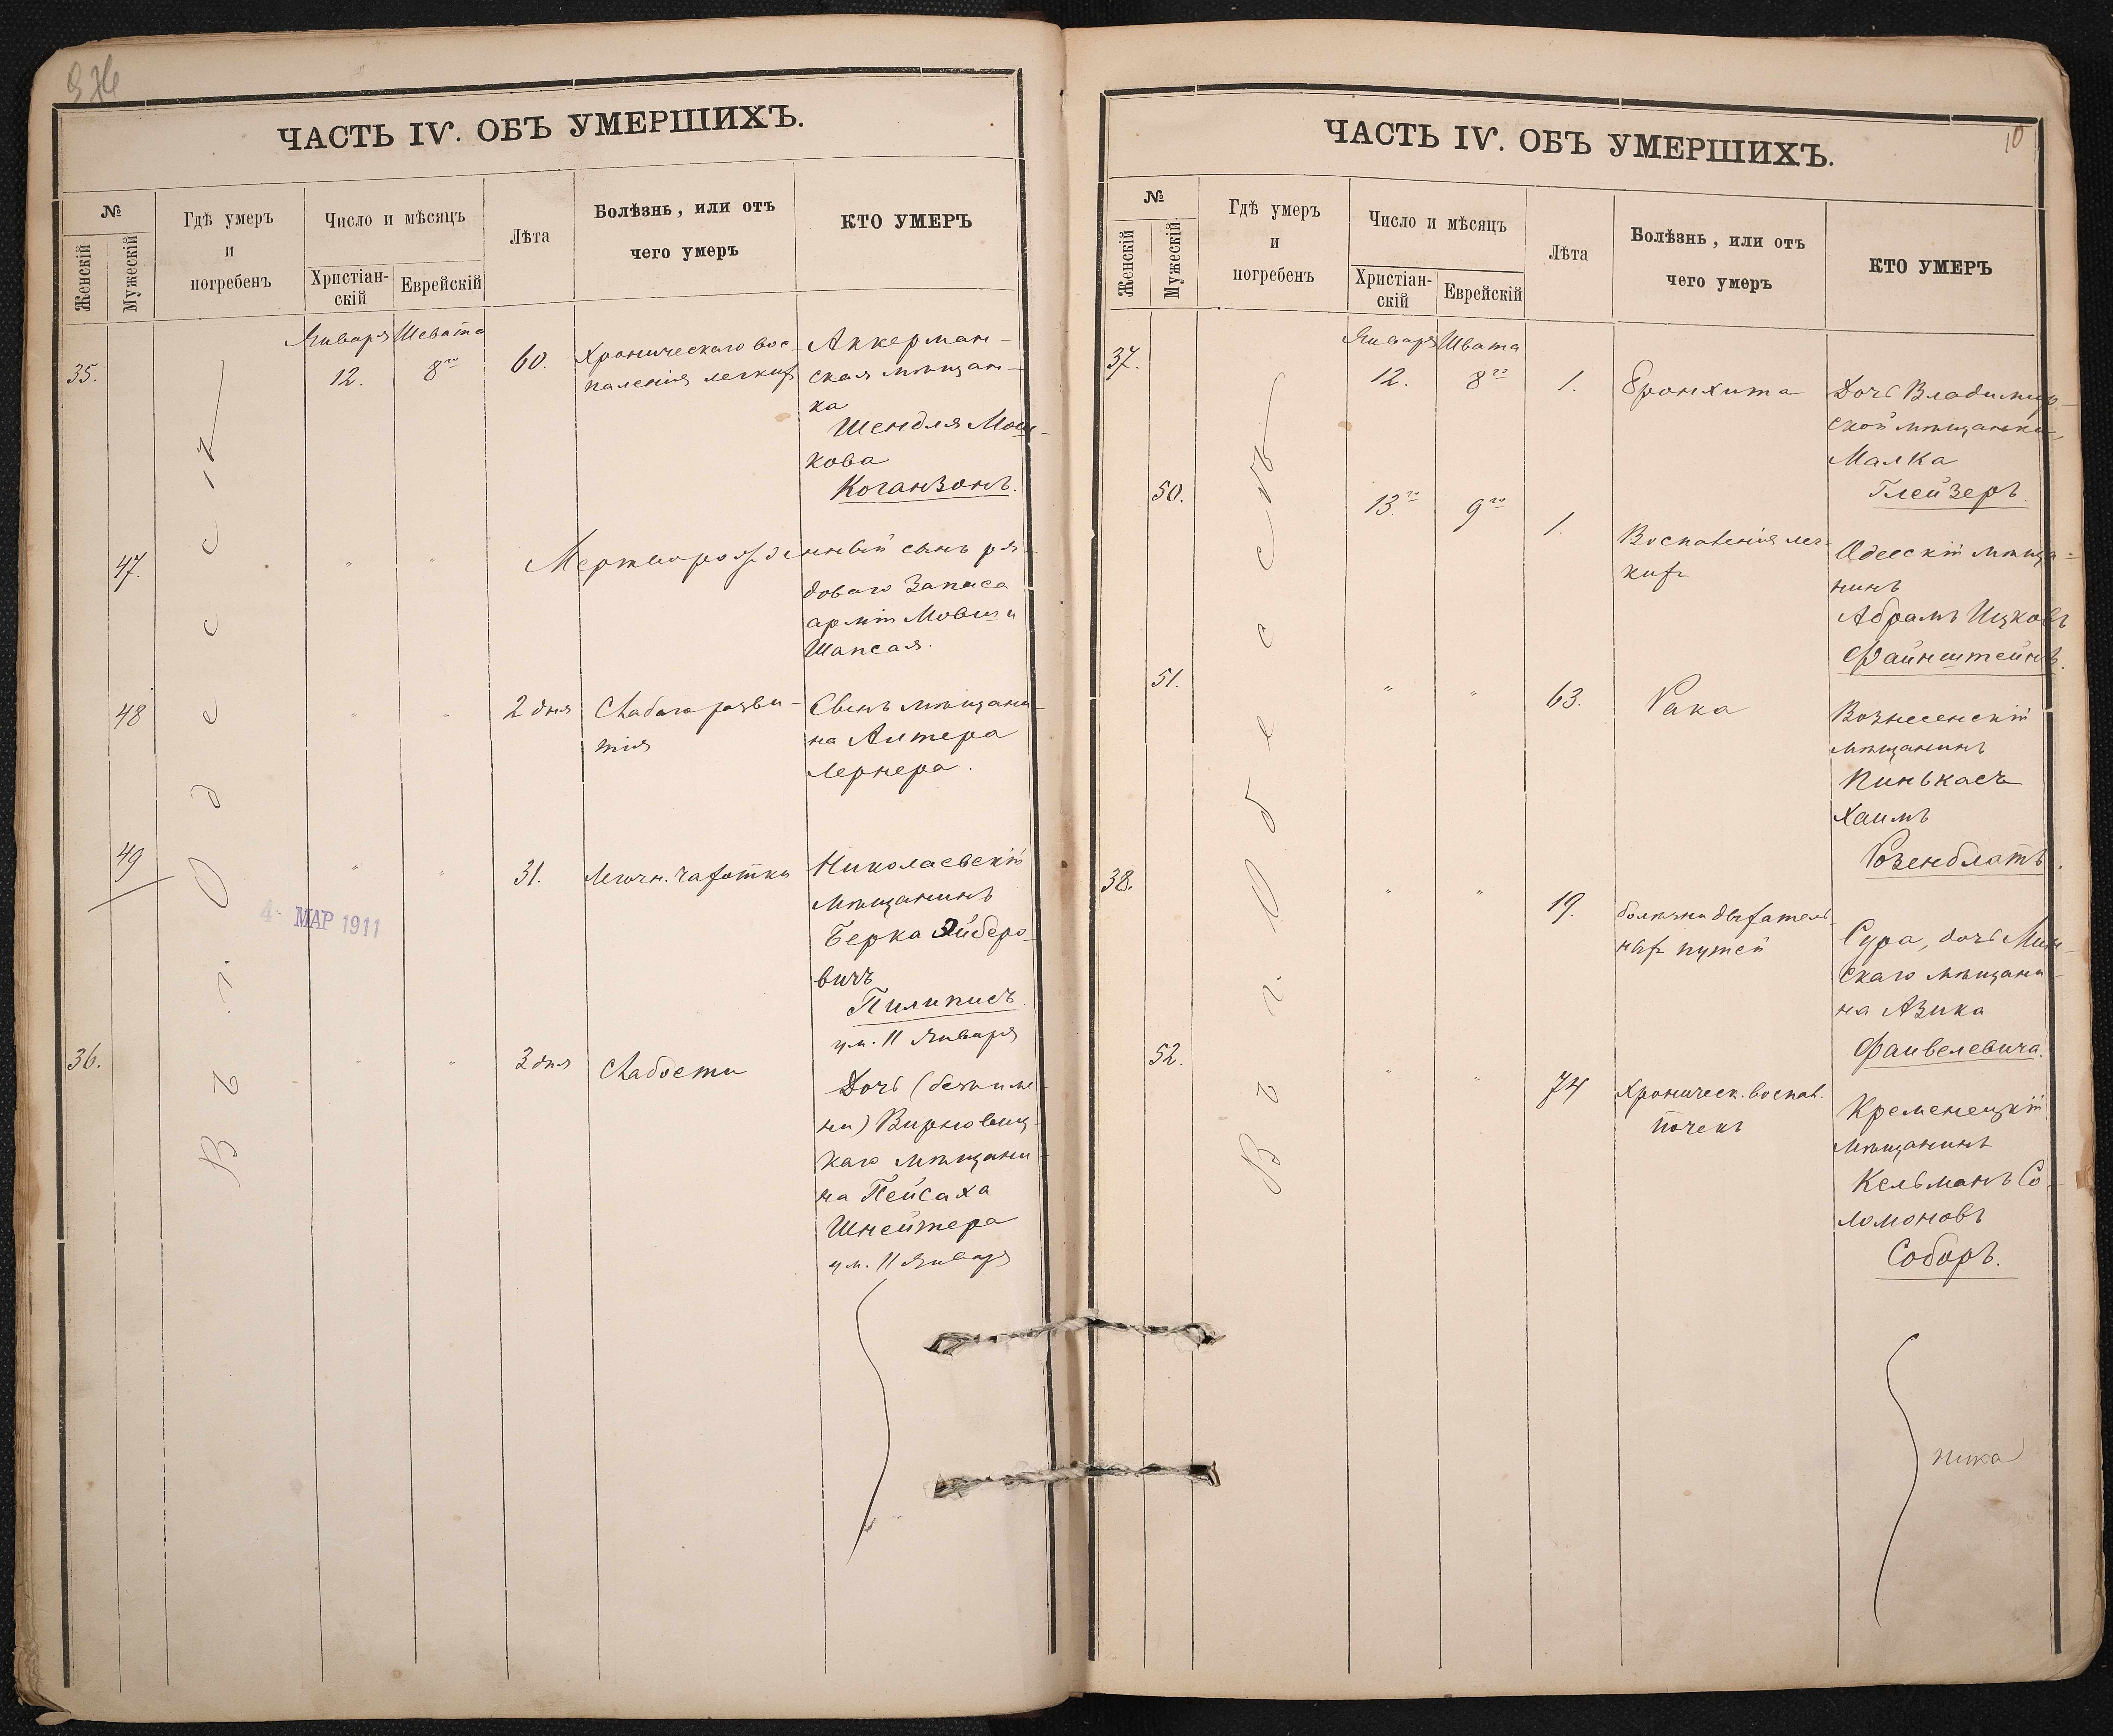 ЧАСТЬ IV. ОБЪ УМЕРШИХЪ.
№
Женскій
Мужескій
Гдѣ умеръ
и
погребенъ
Число и мѣсяцъ
Христіан-
скій
Еврейскій
Лѣта
Болѣзнь, или отъ
чего умеръ
КТО УМЕРЪ
Января Шевата
35.
12.
8го
60.
Хроническаго вос-
паленія легкихъ
Аккерман-
ская мѣщан-
ка
Шендля Мош-
кова
Коганзонъ.
47.
" "
Мертворожденный сынъ ря-
доваго Запаса
арміи Мовши
Шапсая.
48
" "
2 дня
Слабаго разви-
тія
Сынъ мѣщани-
на Алтера
Лернера.
49
" "
31.
Легочн. чахотки
Николаевскій
мѣщанинъ
Берка Эйберо-
вичъ
Пилиписъ.
ум. 11 Января
4 МАР 1911
36.
" "
3 дня
Слабости
Дочь (безъ име-
ни)
каго мѣщани-
на Пейсаха
Шнейтера
ум. 11 Января
Въ г. Одессѣ
ЧАСТЬ IV. ОБЪ УМЕРШИХЪ.
10
№
Женскій
Мужескій
Гдѣ умеръ
и
погребенъ
Число и мѣсяцъ
Христіан-
скій
Еврейскій
Лѣта
Болѣзнь, или отъ
чего умеръ
КТО УМЕРЪ
Января Швата
37.
12.
8го
1.
Бронхита
Дочь Владимир-
ской мѣщанки,
Малка
Глейзеръ.
50.
13.го
9го
1.
Воспаленія лег-
кихъ
Одесскій мѣща-
нинъ
Абрамъ Ицковъ
Файнштейнъ.
51.
" "
63.
Рака
Вознесенскій
мѣщанинъ
Пинькасъ
Хаимъ
Розенблатъ.
38.
" "
19.
болѣзни дыхатель-
ныхъ путей
Сура, дочь Мин-
скаго мѣщани-
на Азика
Файвелевича.
52.
" "
74
Хроническ. воспал.
почекъ
Кременецкій
мѣщанинъ
Кельманъ Со-
ломоновъ
Соборъ.
Въ г. Одессѣ